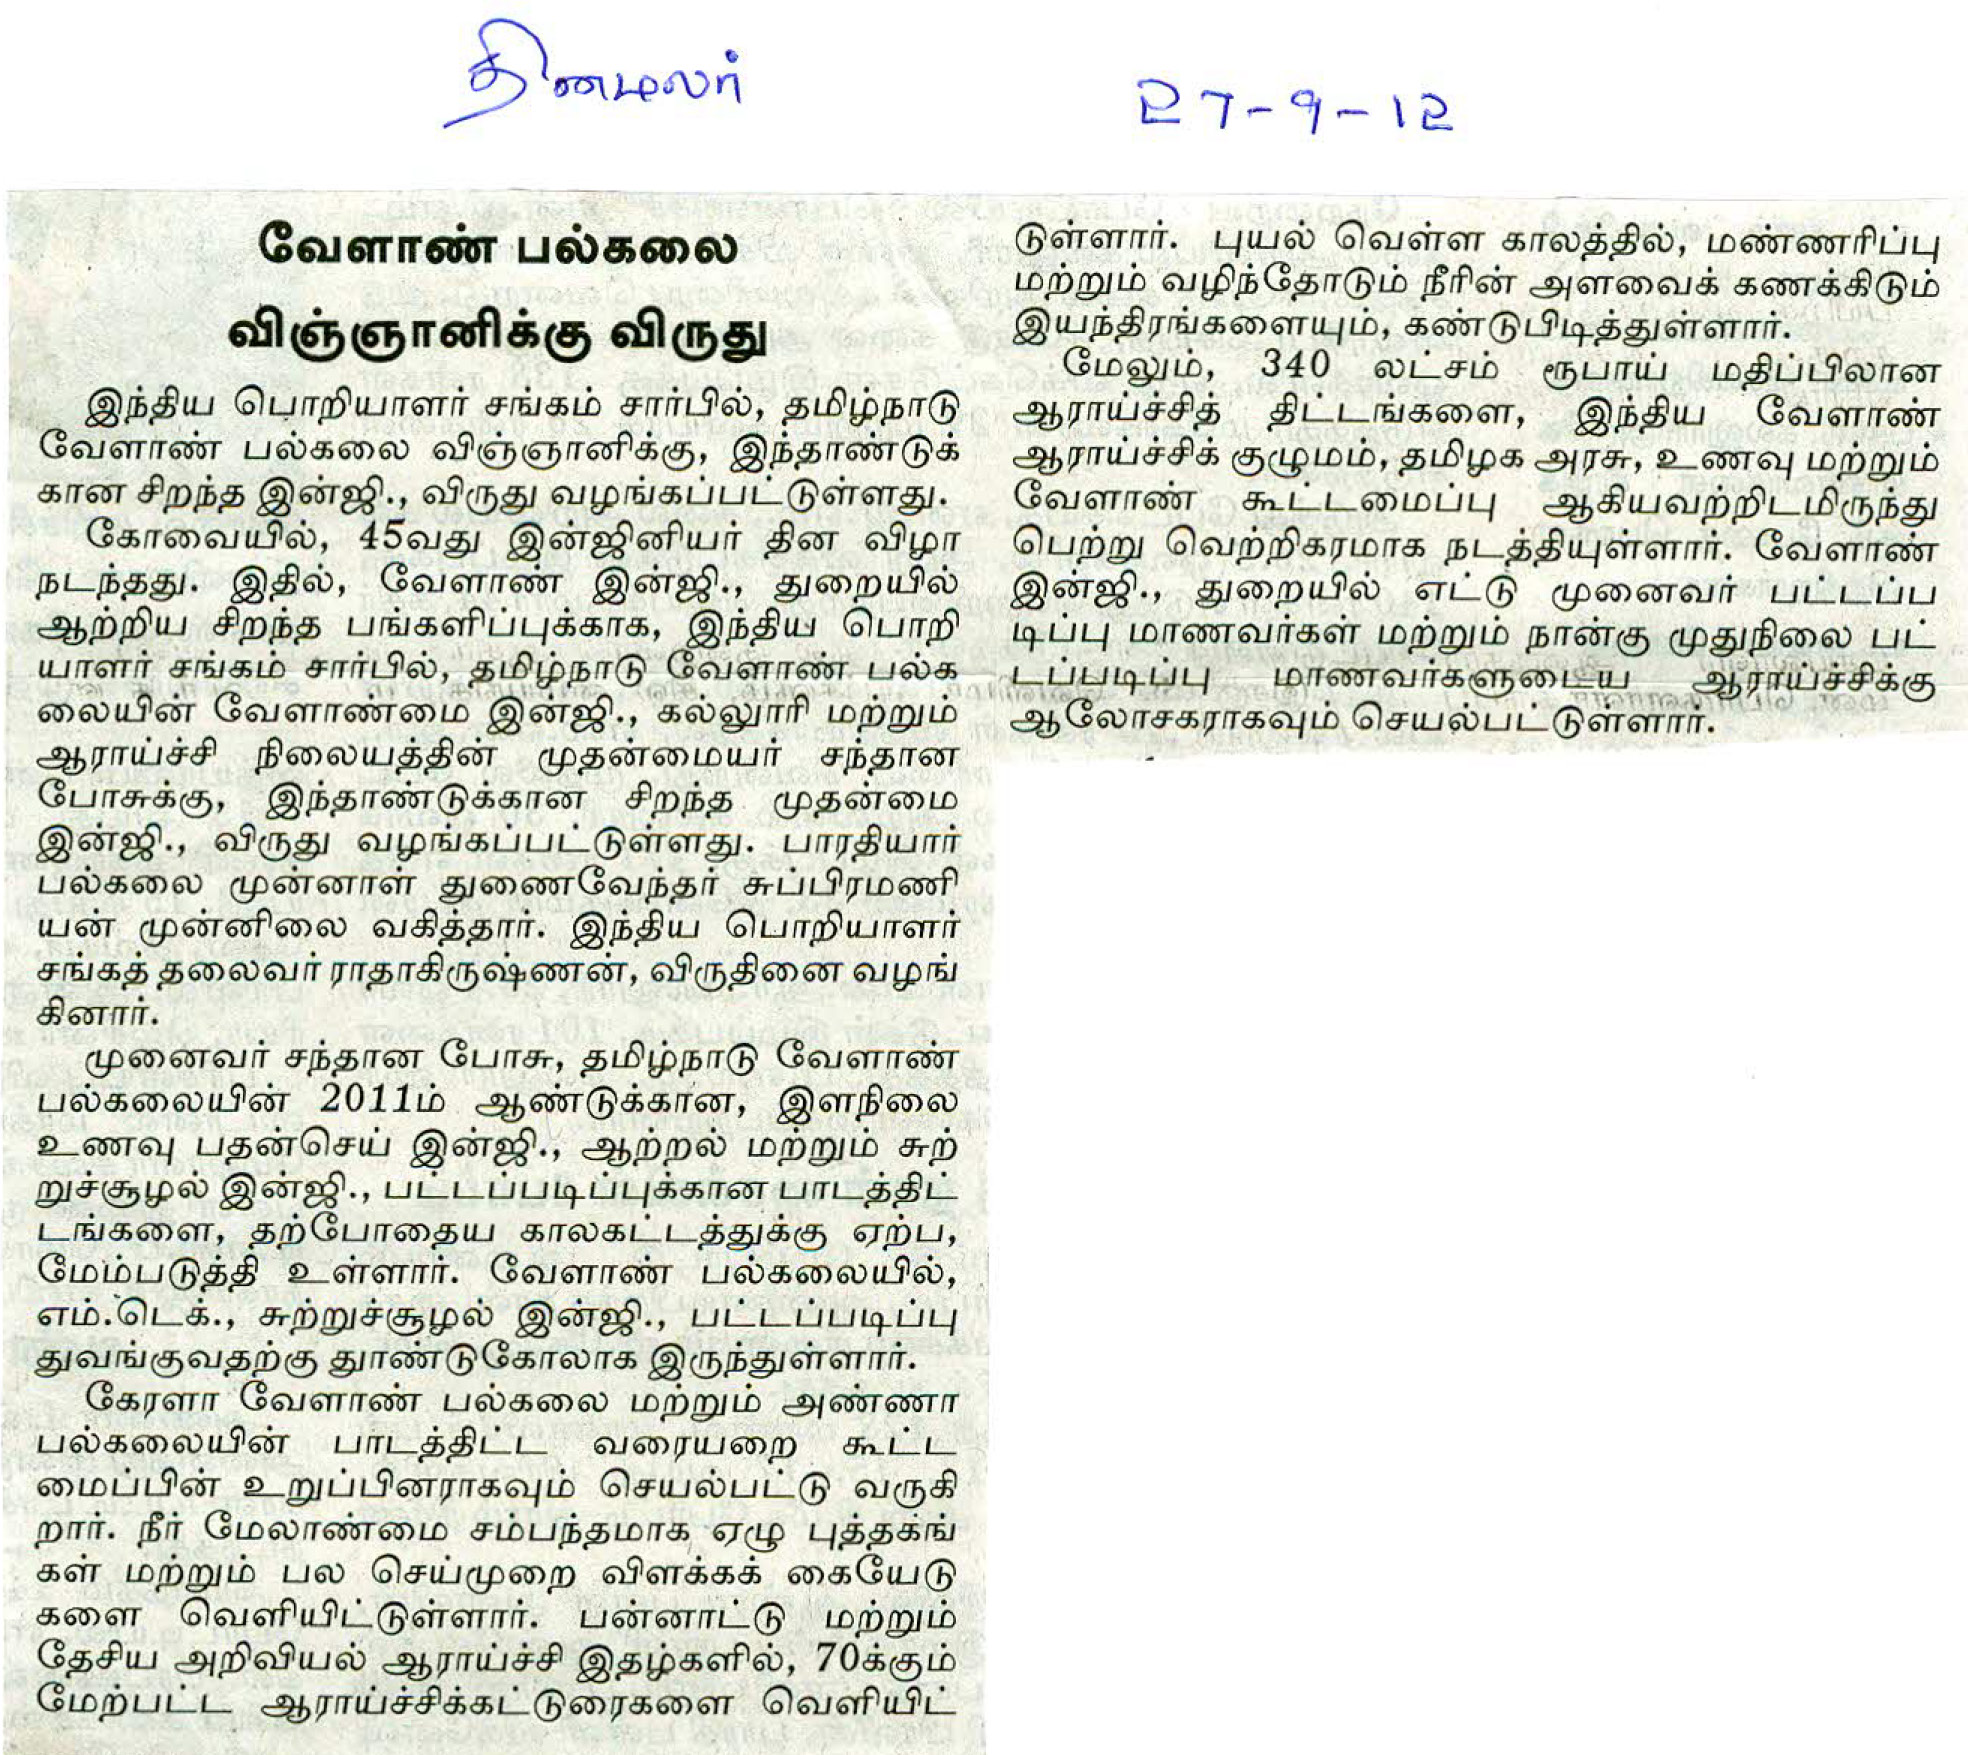 தினமலர்
27-9-12
வேளாண் பல்கலை
விஞ்ஞானிக்கு விருது
இந்திய பொறியாளர் சங்கம் சார்பில், தமிழ்நாடு
வேளாண் பல்கலை விஞ்ஞானிக்கு, இந்தாண்டுக்
கான சிறந்த இன்ஜி., விருது வழங்கப்பட்டுள்ளது.
கோவையில், 45வது இன்ஜினியர் தின விழா
நடந்தது. இதில், வேளாண் இன்ஜி., துறையில்
ஆற்றிய சிறந்த பங்களிப்புக்காக, இந்திய பொறி
யாளர் சங்கம் சார்பில், தமிழ்நாடு வேளாண் பல்க
லையின் வேளாண்மை இன்ஜி., கல்லூரி மற்றும்
ஆராய்ச்சி நிலையத்தின் முதன்மையர் சந்தான
போசுக்கு, இந்தாண்டுக்கான சிறந்த முதன்மை
இன்ஜி., விருது வழங்கப்பட்டுள்ளது. பாரதியார்
பல்கலை முன்னாள் துணைவேந்தர் சுப்பிரமணி
யன் முன்னிலை வகித்தார். இந்திய பொறியாளர்
சங்கத் தலைவர் ராதாகிருஷ்ணன், விருதினை வழங்
கினார்.
முனைவர் சந்தான போசு, தமிழ்நாடு வேளாண்
பல்கலையின் 2011ம் ஆண்டுக்கான, இளநிலை
உணவு பதன்செய் இன்ஜி., ஆற்றல் மற்றும் சுற்
றுச்சூழல் இன்ஜி., பட்டப்படிப்புக்கான பாடத்திட்
டங்களை, தற்போதைய காலகட்டத்துக்கு ஏற்ப,
மேம்படுத்தி உள்ளார். வேளாண் பல்கலையில்,
எம்.டெக்., சுற்றுச்சூழல் இன்ஜி., பட்டப்படிப்பு
துவங்குவதற்கு தூண்டுகோலாக இருந்துள்ளார்.
கேரளா வேளாண் பல்கலை மற்றும் அண்ணா
பல்கலையின் பாடத்திட்ட வரையறை கூட்ட
மைப்பின் உறுப்பினராகவும் செயல்பட்டு வருகி
றார். நீர் மேலாண்மை சம்பந்தமாக ஏழு புத்தகங்
கள் மற்றும் பல செய்முறை விளக்கக் கையேடு
களை வெளியிட்டுள்ளார். பன்னாட்டு மற்றும்
தேசிய அறிவியல் ஆராய்ச்சி இதழ்களில், 70க்கும்
மேற்பட்ட ஆராய்ச்சிக்கட்டுரைகளை வெளியிட்
டுள்ளார். புயல் வெள்ள காலத்தில், மண்ணரிப்பு
மற்றும் வழிந்தோடும் நீரின் அளவைக் கணக்கிடும்
இயந்திரங்களையும், கண்டுபிடித்துள்ளார்.
மேலும், 340 லட்சம் ரூபாய் மதிப்பிலான
ஆராய்ச்சித் திட்டங்களை, இந்திய வேளாண்
ஆராய்ச்சிக் குழுமம், தமிழக அரசு, உணவு மற்றும்
வேளாண் கூட்டமைப்பு ஆகியவற்றிடமிருந்து
பெற்று வெற்றிகரமாக நடத்தியுள்ளார். வேளாண்
இன்ஜி., துறையில் எட்டு முனைவர் பட்டப்ப
டிப்பு மாணவர்கள் மற்றும் நான்கு முதுநிலை பட்
டப்படிப்பு மாணவர்களுடைய ஆராய்ச்சிக்கு
ஆலோசகராகவும் செயல்பட்டுள்ளார்.